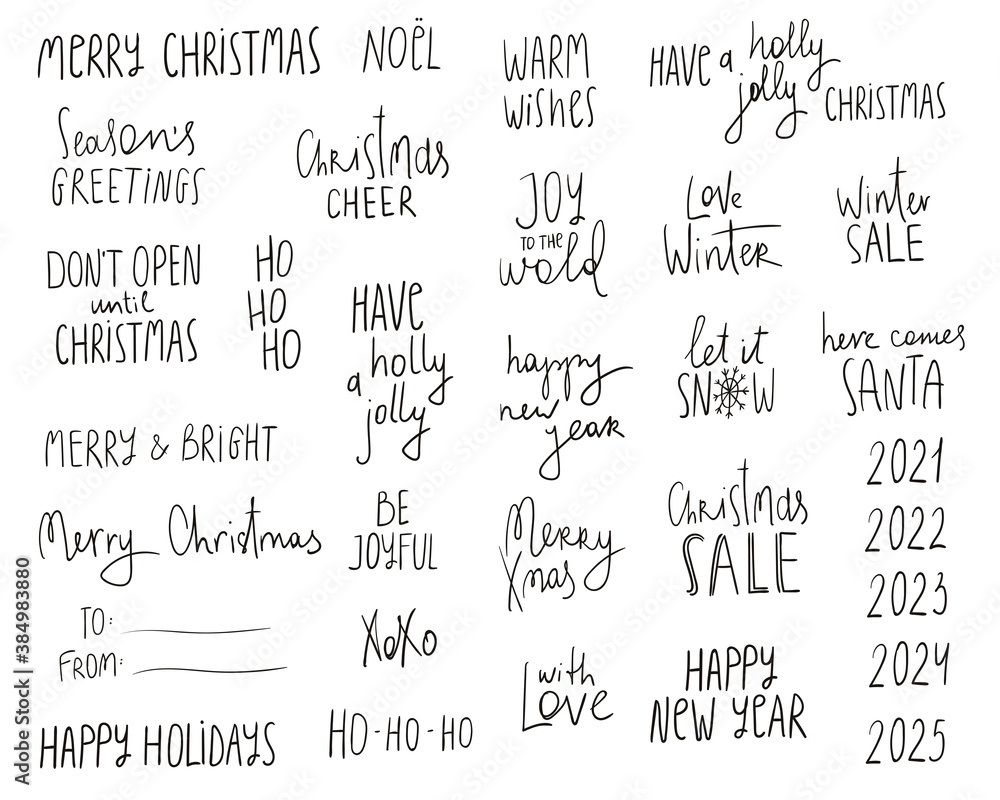 MERRY CHRISTMAS
NOËL
WARM
WISHES
HAVE a holly
jolly
CHRISTMAS
Season's
GREETINGS
Christmas
CHEER
JOY
TO THE
wold
Love
Winter
Winter
SALE
DON'T OPEN
until
CHRISTMAS
HO
HO
HO
HAVE
a holly
jolly
happy
new
year
let it
SNOW
here comes
SANTA
MERRY & BRIGHT
Merry Christmas
BE
JOYFUL
Merry
Xmas
Christmas
SALE
2021
2022
2023
2024
2025
TO:
FROM:
XoXo
with
Love
HAPPY
NEW YEAR
HAPPY HOLIDAYS
HO-HO-HO
Adobe Stock | #384983880